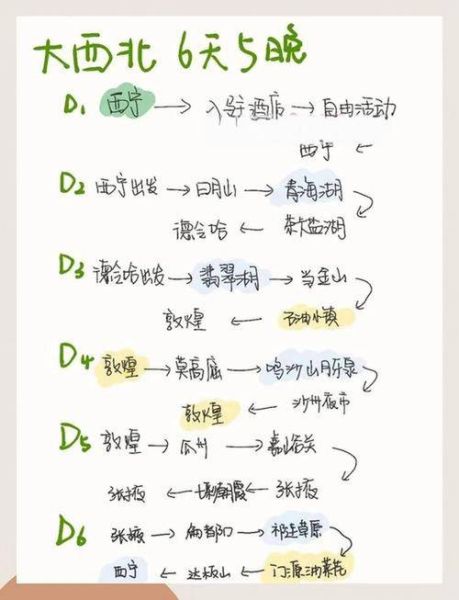 大西北 6天5晚
D1 西宁 → 入驻酒店 → 自由活动
西宁 ←
D2 西宁出发 → 日月山 → 青海湖
德令哈 ← 茶卡盐湖
D3 德令哈出发 → 翡翠湖 → 当金山
敦煌 ← 石油小镇
D4 敦煌 → 莫高窟 → 鸣沙山月牙泉
敦煌 ← 沙州夜市
D5 敦煌 → 瓜州 → 嘉峪关
张掖 ← ← 张掖
D6 张掖 → 扁都口 → 祁连草原
西宁 ← 达板山 ← 门源油菜花